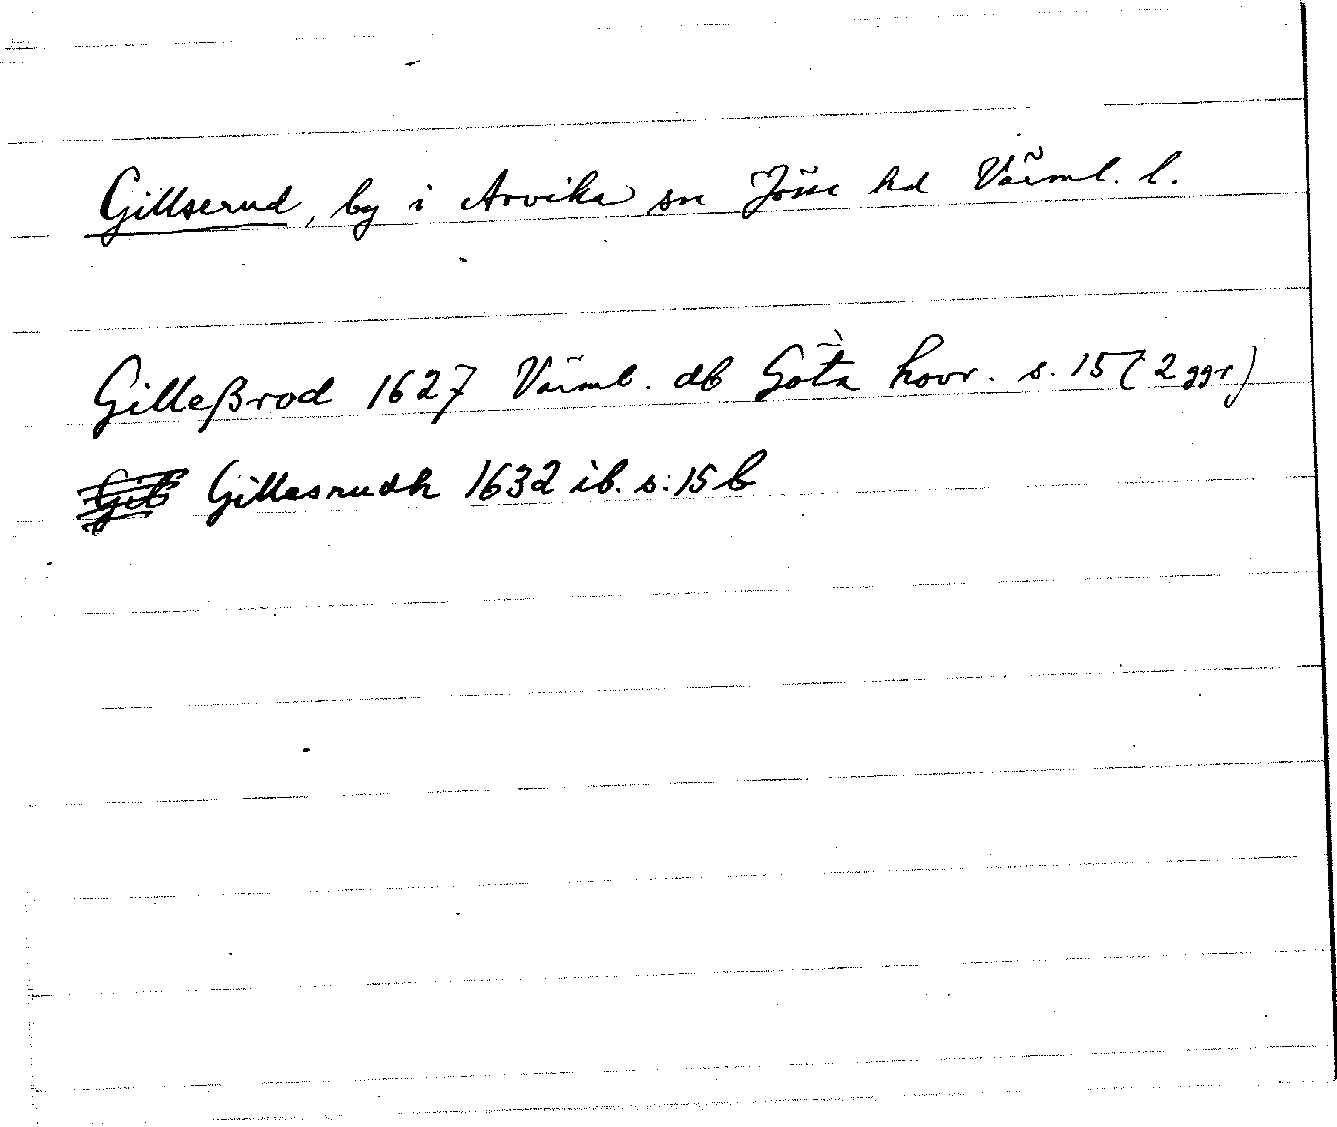 Gillserud, by i Arvika sn Jösse hd Värml. l.
Gilleßrod 1627 Värml. db Göta hovr. s. 15 (2 ggr)
Gillesrudh 1632 ib. s. 15 b